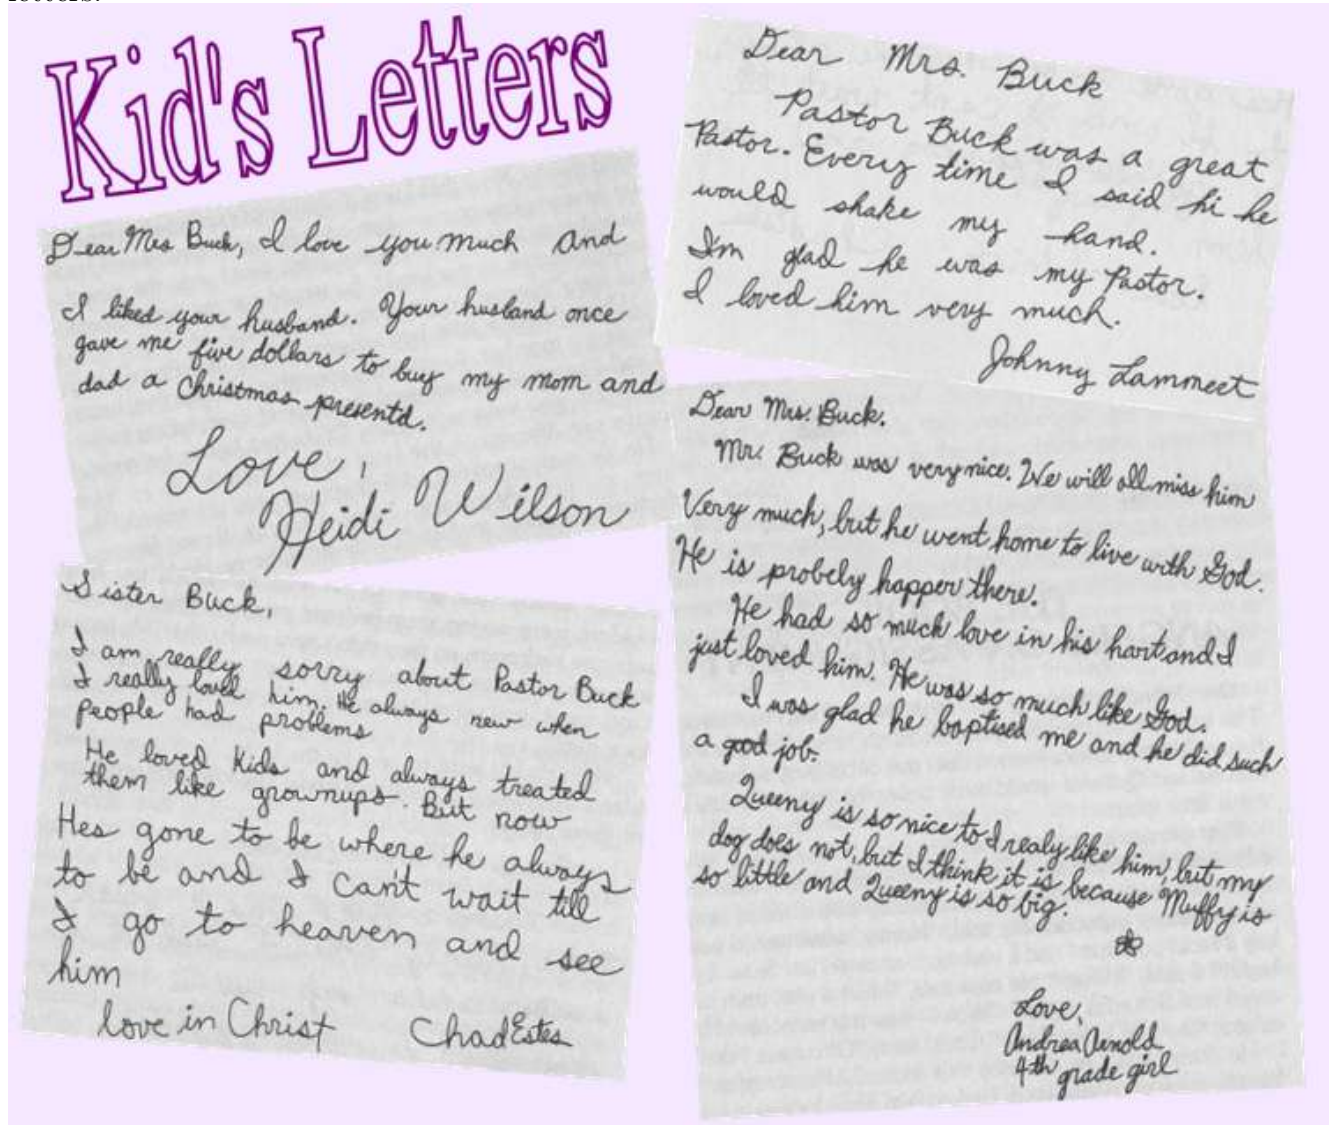 letters.
Kid's Letters
Dear Mrs Buck, I love you much and
I liked your husband. Your husband once
gave me five dollars to buy my mom and
dad a Christmas presentd.
Love,
Heidi Wilson
Sister Buck,
I am really sorry about Pastor Buck
I really loved him. He always new when
people had problems
He loved Kids and always treated
them like grownups. But now
Hes gone to be where he always
to be and I can't wait till
I go to heaven and see
him
love in Christ Chad Estes
Dear Mrs. Buck
Pastor Buck was a great
Pastor. Every time I said hi he
would shake my hand.
I'm glad he was my Pastor.
I loved him very much.
Johnny Lammeet
Dear Mrs. Buck.
Mr. Buck was very nice. We will all miss him
Very much, but he went home to live with God.
He is probely happer there.
He had so much love in his hart and I
just loved him. He was so much like God.
I was glad he baptised me and he did such
a good job.
Queeny is so nice to I realy like him, but my
dog does not, but I think it is because Muffy is
so little and Queeny is so big.
Love,
Andrea Arnold
4th grade girl